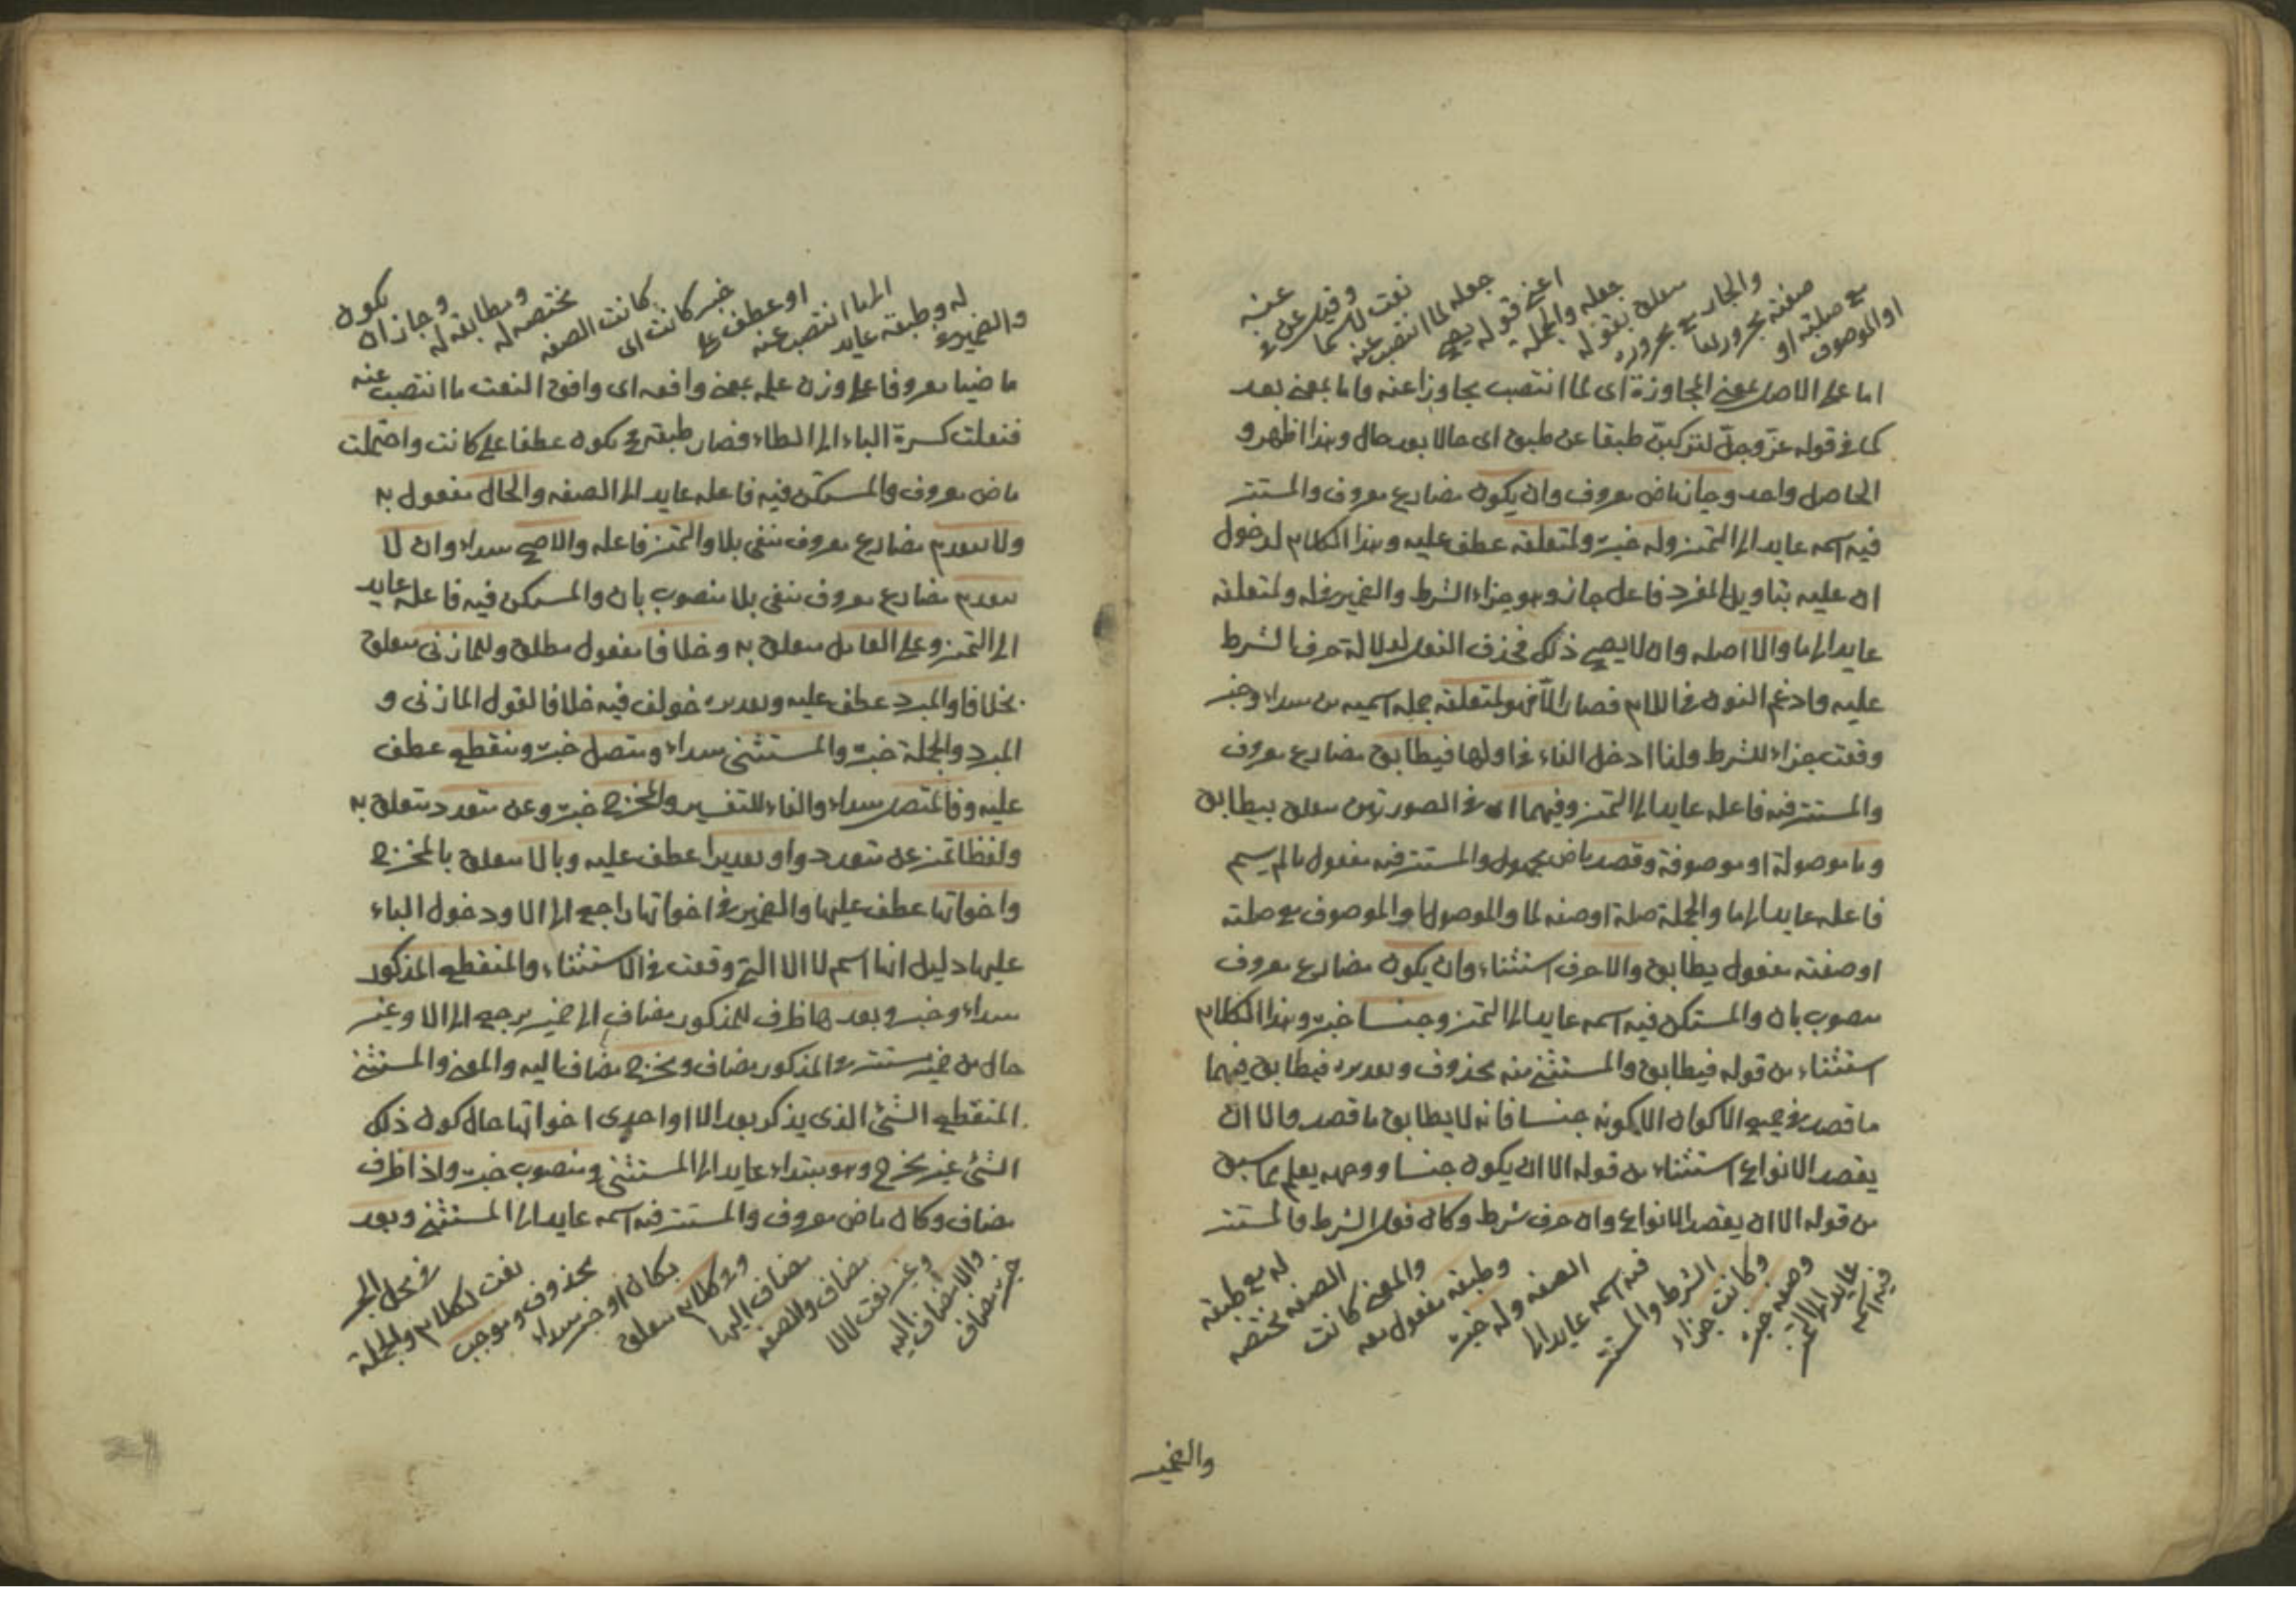 او الموصوف
مع صلته او
صفته مجرور لها
والجار مع مجروره
متعلق بقوله
جعله والجملة
اعنى قوله يصح
جعله لما انتصب عنه
نعت لاسما
وقيل عن فى
عنه
اما على الاصل بمعنى المجاوزة اى لما انتصب مجاوزا عنه واما بمعنى بعد
كما فى قوله عز وجل لتركبن طبقا عن طبق اى حالا بعد حال وهذا اظهر و
الحاصل واحد وجاز ماض معروف وان يكون مضارع معروف والمستتر
فيه اسمه عايد الى التميز وله خبره ولمتعلقه عطف عليه وهذا الكلام لدخول
ان عليه بتاويل المفرد فاعل جاز وهو جزاء الشرط والضمير فى له ولمتعلقه
عايد الى ما والا اصله وان لا يصح ذلك فحذف الفعل لدلالة حرف الشرط
عليه وادغم النون فى اللام فصار الا فهو لمتعلقه جملة اسمية من مبتداء وخبر
وقعت جزاء للشرط ولذا ادخل الفاء فى اولها فيطابق مضارع معروف
والمستتر فيه فاعله عايد الى التميز وفيهما اى فى الصورتين متعلق بيطابق
وما موصولة او موصوفة وقصد ماض مجهول والمستتر فيه مفعول ما لم يسم
فاعله عايد الى ما والجملة صلة او صفة لما والموصول او الموصوف مع صلته
او صفته مفعول يطابق والا حرف استثناء وان يكون مضارع معروف
منصوب بان والمستكن فيه اسمه عايد الى التميز وجنسا خبره وهذا الكلام
استثناء من قوله فيطابق والمستثنى منه محذوف وتقديره فيطابق فيهما
ما قصد فى جميع الاكوان الا كونه جنسا فانه لا يطابق ما قصد والا ان
يقصد الانواع استثناء من قوله الا ان يكون جنسا ووجهه يعلم مما سبق
من قوله الا ان يقصد الانواع وان حرف شرط وكان فعل الشرط والمستتر
فيه اسمه
عايد الى التميز
وصفة خبره
وكانت جزاء
الشرط والمستتر
فيه اسمه عايد الى
الصفه وله خبره
وطبقه مفعول معه
والمعنى كانت
الصفه مختصه
له مع طبقه
والضمير
والضمير فى
له وطبقه عايد
الى ما انتصب عنه
او عطف على
خبر كانت اى
كانت الصفه
مختصه له
ومطابقه له
وجاز ان
يكون
ماضيا معروفا على وزن علم بمعنى وافقه اى وافق النعت ما انتصب عنه
فنقلت كسرة الباء الى الطاء فصار طبقه يكون عطفا على كانت واحتملت
ماض معروف والمستكن فيه فاعله عايد الى الصفه والحال مفعول به
ولا يتقدم مضارع معروف منفى بلا والتميز فاعله والاصح مبتداء وان لا
يتقدم مضارع معروف منفى بلا منصوب بان والمستكن فيه فاعله عايد
الى التميز وعلى العامل متعلق به وخلافا مفعول مطلق وللمازنى متعلق
بخلافا والمبرد عطف عليه وتقديره خولف فيه خلافا لقول المازنى و
المبرد والجملة خبره والمستثنى مبتداء ومتصل خبره ومنقطع عطف
عليه وفالمتصل مبتداء والفاء للتفسير والمخرج خبره وعن متعدد متعلق به
ولفظا تميز عن متعدد واو تقديرا عطف عليه وبالا متعلق بالمخرج
واخواتها عطف عليها والضمير فى اخواتها راجع الى الا ودخول الباء
عليها دليل انها اسم لا الا التى وقعت فى الاستثناء والمنقطع المذكور
مبتداء وخبر وبعدها ظرف للمذكور مضاف الى ضمير يرجع الى الا وغير
حال من ضمير مستتر فى المذكور مضاف ومخرج مضاف اليه والمعنى والمستثنى
المنقطع الشئ الذى يذكر بعد الا او احدى اخواتها حال كون ذلك
الشئ غير مخرج وهو مبتداء عايد الى المستثنى ومنصوب خبره واذا ظرف
مضاف وكان ماض معروف والمستتر فيه اسمه عايد الى المستثنى وبعد
خبره مضاف
والا مضاف اليه
وغير نعت لالا
مضاف والصفه
مضاف اليها
وفى كلام متعلق
بكان او خبر مبتداء
محذوف وموجب
نعت لكلام والجملة
فى محل الجر